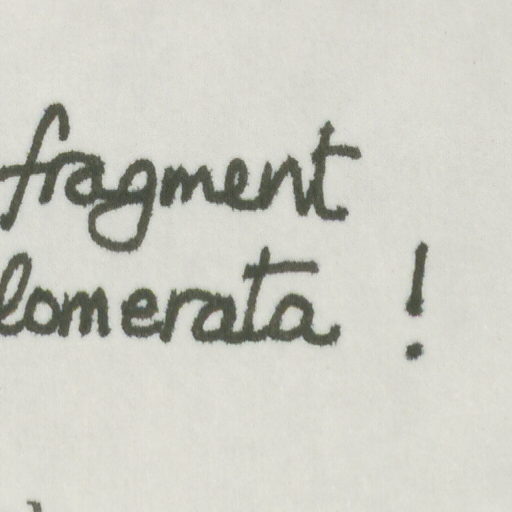 fragment
lomerata !